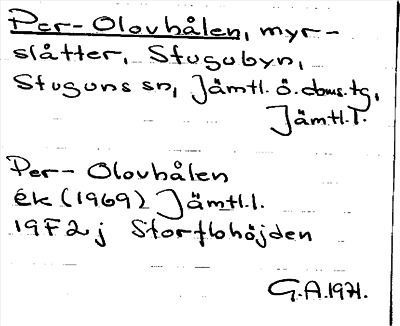 Per-Olovhålen, myr-
slåtter, Stugubyn,
Stuguns sn, Jämtl. ö. doms.tg,
Jämtl.l.
Per-Olovhålen
ek (1969) Jämtl.l.
19F2j Storflohöjden
G.A.1971.